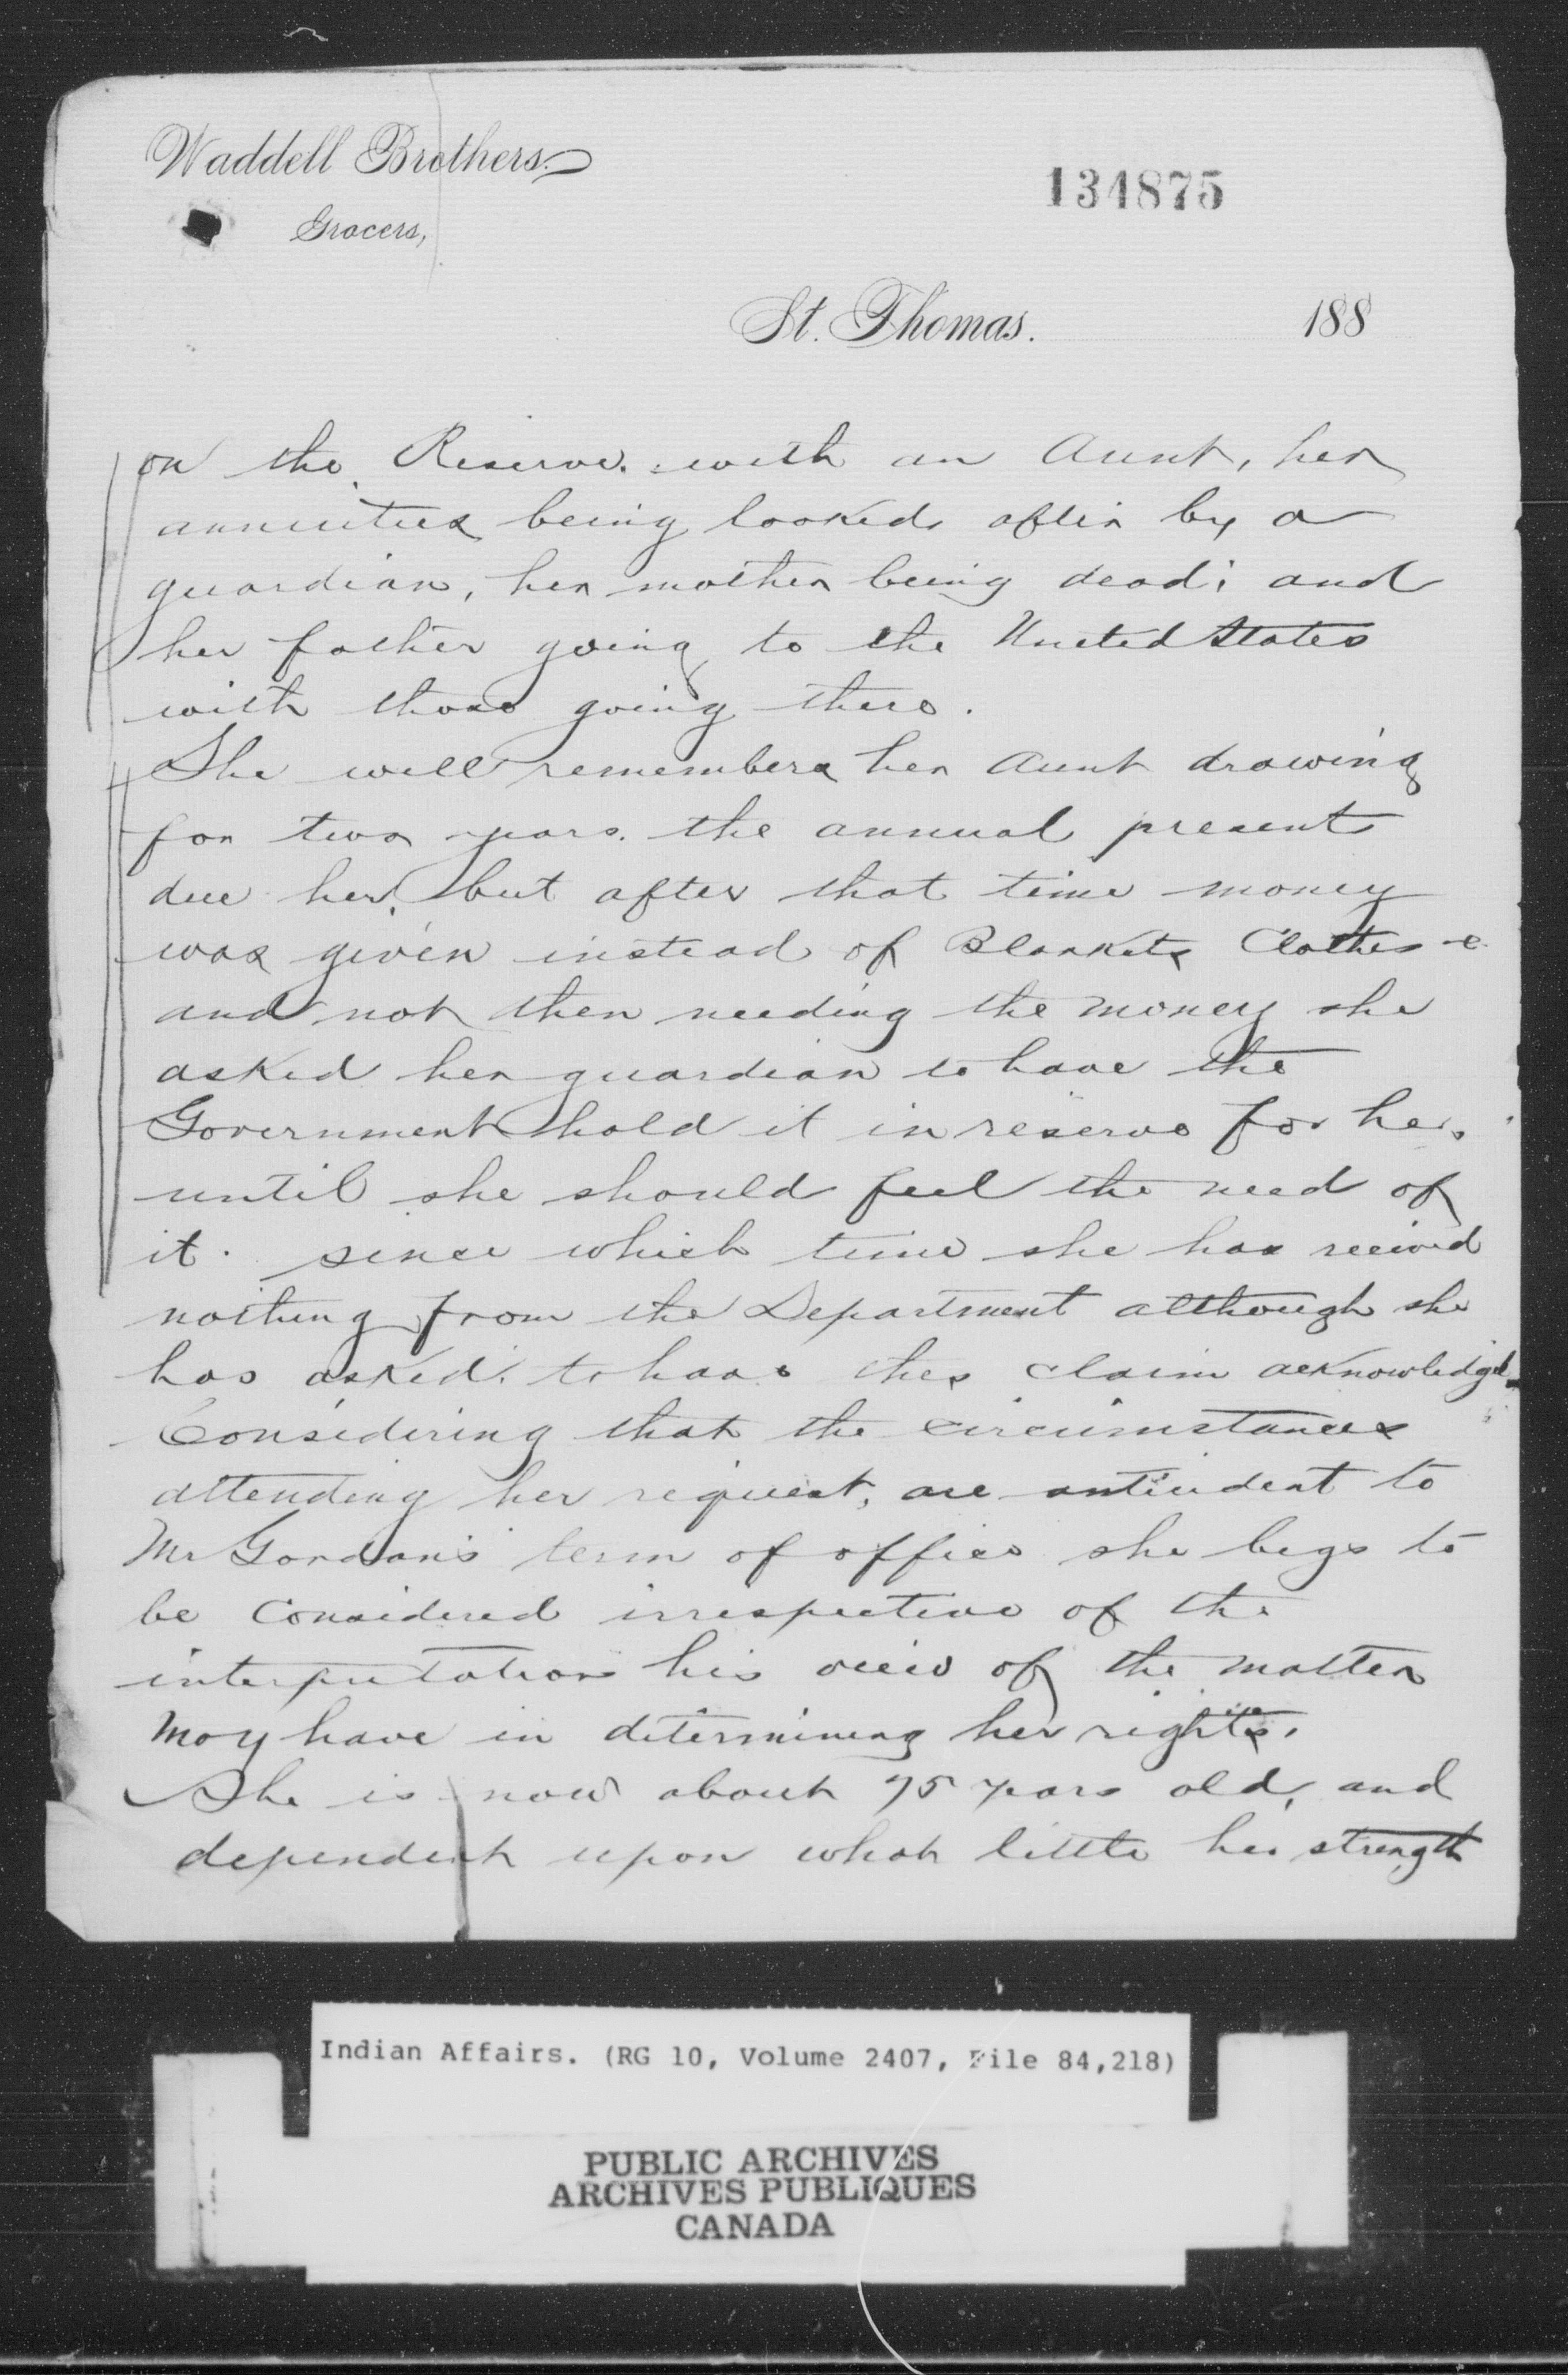 Waddell Brothers.
Grocers,
134875
St. Thomas. 188
on the Reserve with an Aunt, her
annuities being looked after by a
guardian, her mother being dead; and
her father going to the United States
with those going there.
She well remembers her Aunt drawing
for two years the annual present
due her, but after that time money
was given instead of Blankets Clothes &c
and not then needing the money she
asked her guardian to have the
Government hold it in reserve for her,
until she should feel the need of
it. since which time she has received
nothing from the Department although she
has asked to have the claim acknowledged.
Considering that the circumstances
attending her request, are anticedent to
Mr Gordon's term of office she begs to
be Considered irrespective of the
interpretation his view of the matter
may have in determining her rights.
She is now about 75 years old, and
dependent upon what little her strength
Indian Affairs. (RG 10, Volume 2407, File 84,218)
PUBLIC ARCHIVES
ARCHIVES PUBLIQUES
CANADA